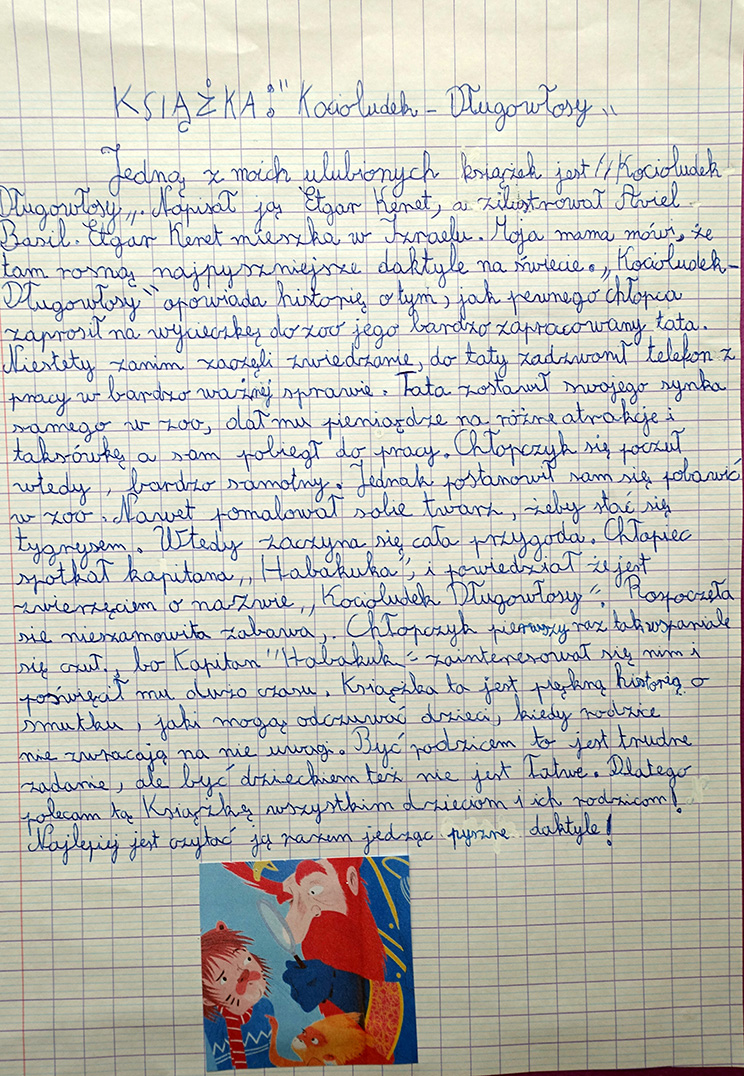 KSIĄŻKA: "Kocioludek - Długowłosy"
Jedną z moich ulubionych książek jest "Kocioludek
Długowłosy". Napisał ją Etgar Keret, a zilistrował Aviel
Basil. Etgar Keret mieszka w Izraelu. Moja mama mówi, że
tam rosną najpyszniejsze daktyle na świecie. "Kocioludek-
Długowłosy" opowiada historię o tym, jak pewnego chłopca
zaprosił na wycieczkę do zoo jego bardzo zapracowany tata.
Niestety zanim zaczęli zwiedzanie, do taty zadzwonił telefon z
pracy w bardzo ważnej sprawie. Tata zostawił swojego synka
samego w zoo, dał mu pieniądze na różne atrakcje i
taksówkę a sam pobiegł do pracy. Chłopczyk się poczuł
wtedy, bardzo samotny. Jednak postanowił sam się pobawić
w zoo. Nawet pomalował sobie twarz, żeby stać się
tygrysem. Wtedy zaczyna się cała przygoda. Chłopiec
spotkał kapitana "Habakuka", i powiedział że jest
zwierzęciem o nazwie "Kocioludek Długowłosy". Rozpoczęła
się niesamowita zabawa. Chłopczyk pierwszy raz tak wspaniale
się czuł, bo Kapitan "Habakuk" zainteresował się nim i
poświęcił mu dużo czasu. Książka ta jest piękną historią o
smutku, jaki mogą odczuwać dzieci, kiedy rodzice
nie zwracają na nie uwagi. Być rodzicem to jest trudne
zadanie, ale być dzieckiem też nie jest łatwe. Dlatego
polecam tą Książkę wszystkim dzieciom i ich rodzicom!
Najlepiej jest czytać ją razem jedząc pyszne daktyle!